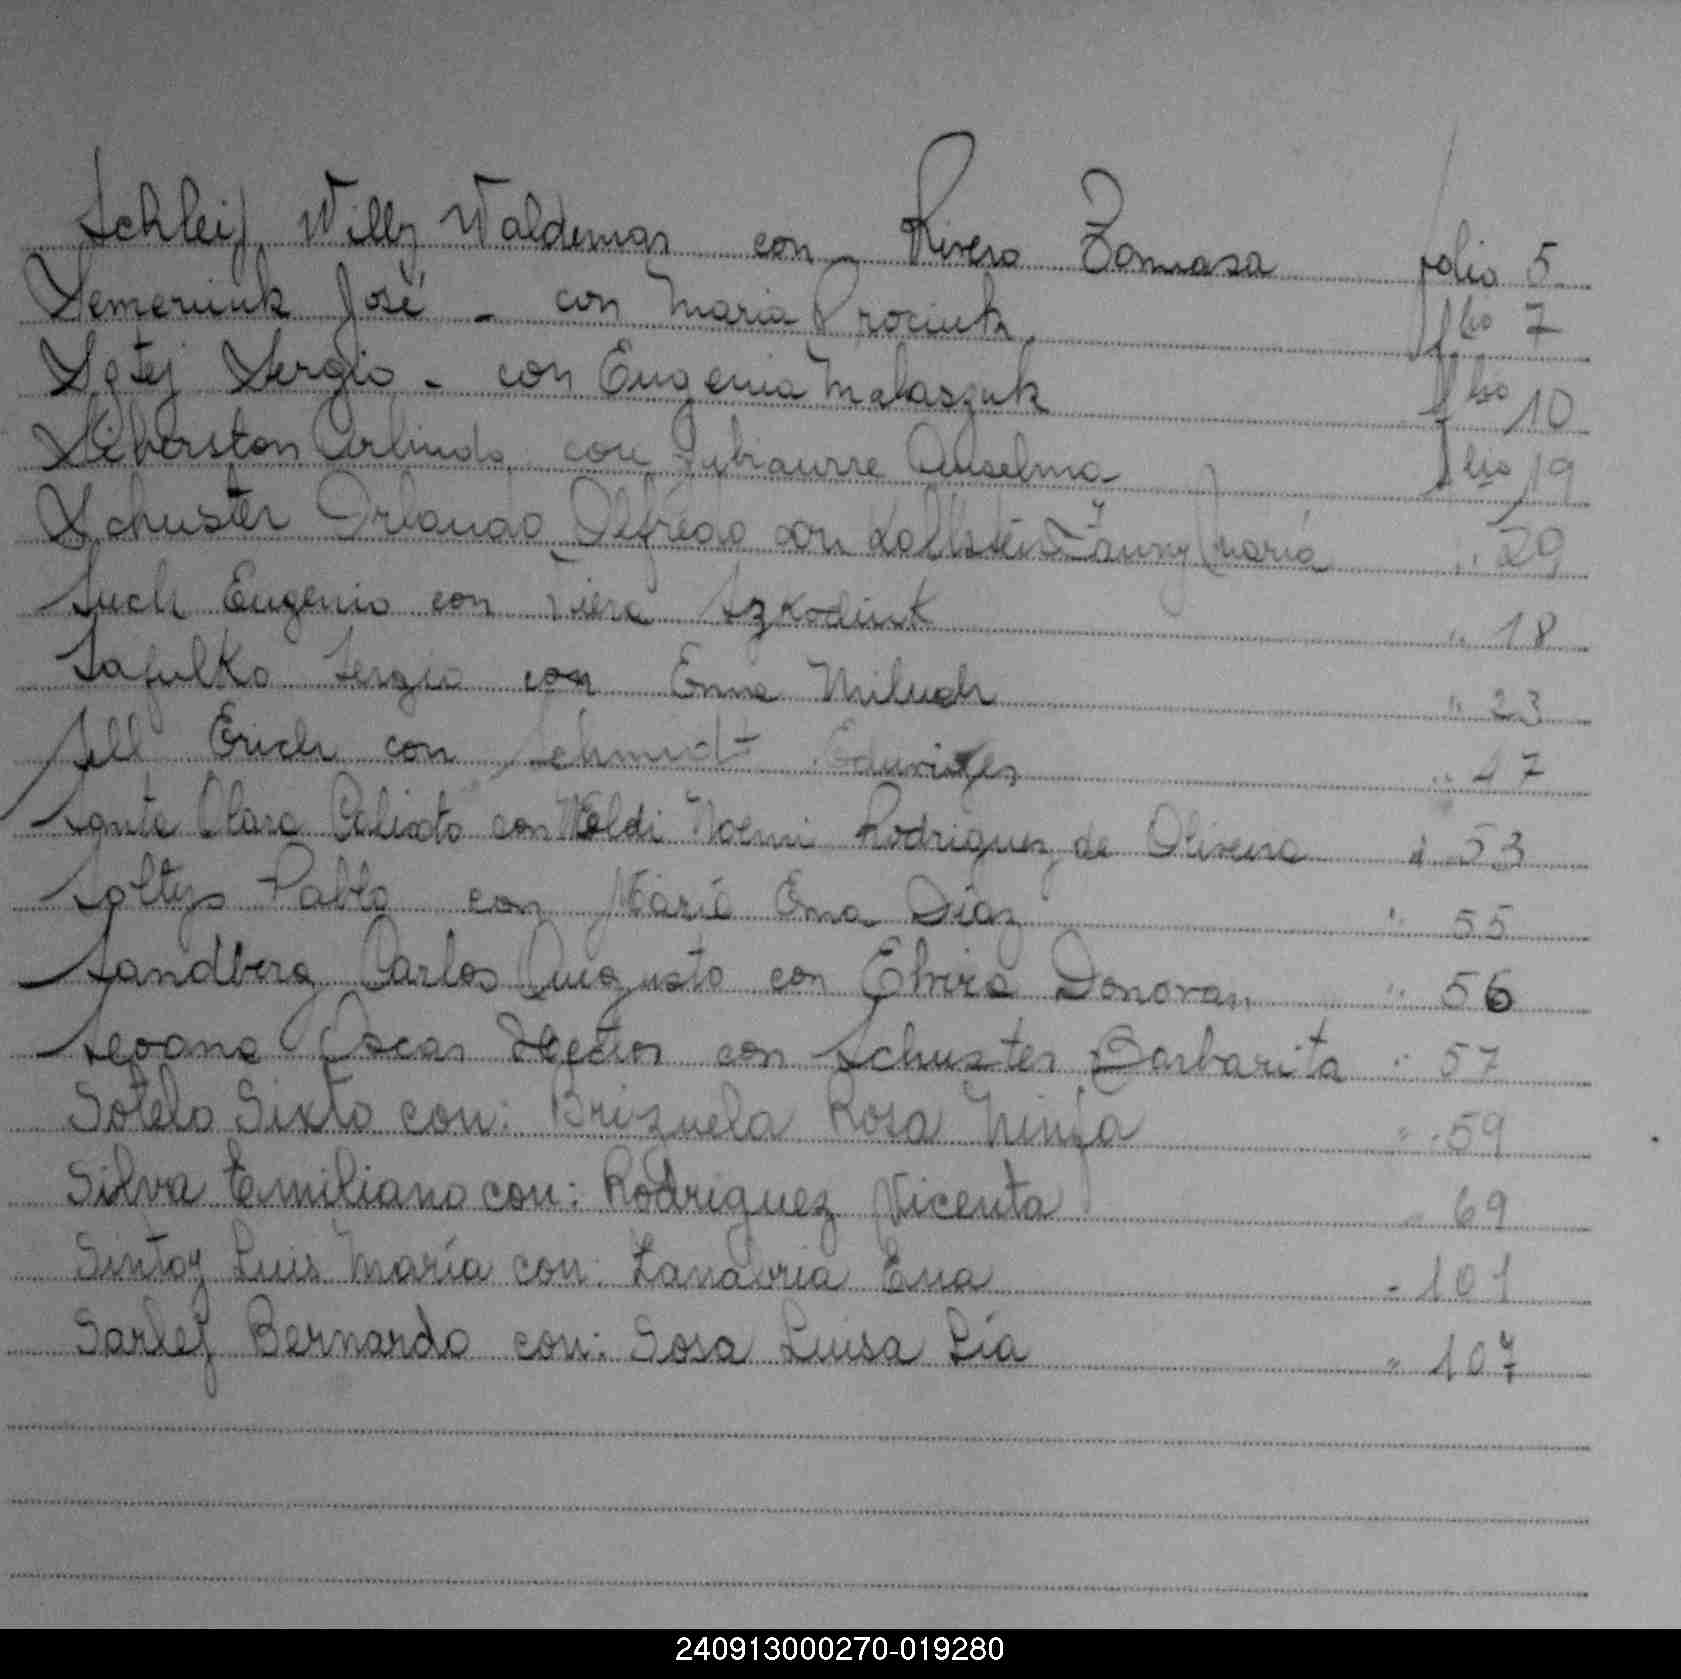 Schleif Willy Waldemar con Rivero Tomasa folio 5
Semeniuk José - con Maria Prociuk flio 7
Sergio - con Eugenia Malaszuk flio 10
Siberston Arlindo con Anselma flio 19
Schuster Orlando Alfredo con Fanny María " 29
Such Eugenio con Viera Szkodiuk " 18
Safulko Sergio con Emma Miluch " 23
Sell Erich con Schmidt Eduviges " 47
Santa Clara Calixto con Noemi Rodriguez de Oliveira " 53
Soltys Pablo con María Ema Diaz " 55
Sandberg Carlos Augusto con Elvira Donovan " 56
Seoane Oscar Hector con Schuster Barbarita " 57
Sotelo Sixto con: Brizuela Rosa Ninfa " 59
Silva Emiliano con: Rodriguez Vicenta " 69
Luis María con: Zanabria Ena " 101
Bernardo con: Sosa Luisa Lía " 107
240913000270-019280